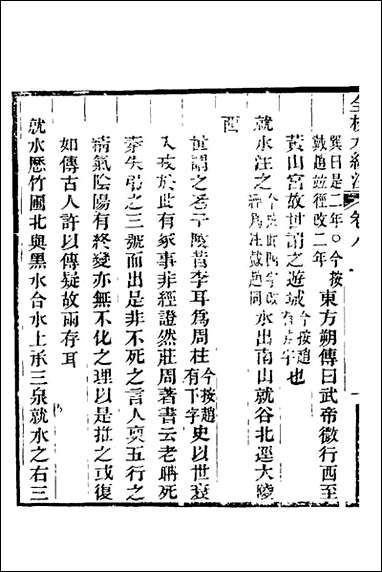 全校水經注 卷八
巽曰是二年〇今按戴趙並徑改二年東方朔傳曰武帝微行西至
黃山宮故世謂之遊城今按趙有是字也
就水注之今按此四字改經爲注戴趙同水出南山就谷北逕大陵
西
世謂之老子陵昔李耳爲周柱今按趙有下字史以世衰
入戎於此有冢事非經證然莊周著書云老聃死
秦失弔之三號而出是非不死之言人稟五行之
精氣陰陽有終變亦無不化之理以是推之或復
如傳古人許以傳疑故兩存耳
就水歷竹圃北與黑水合水上承三泉就水之右三